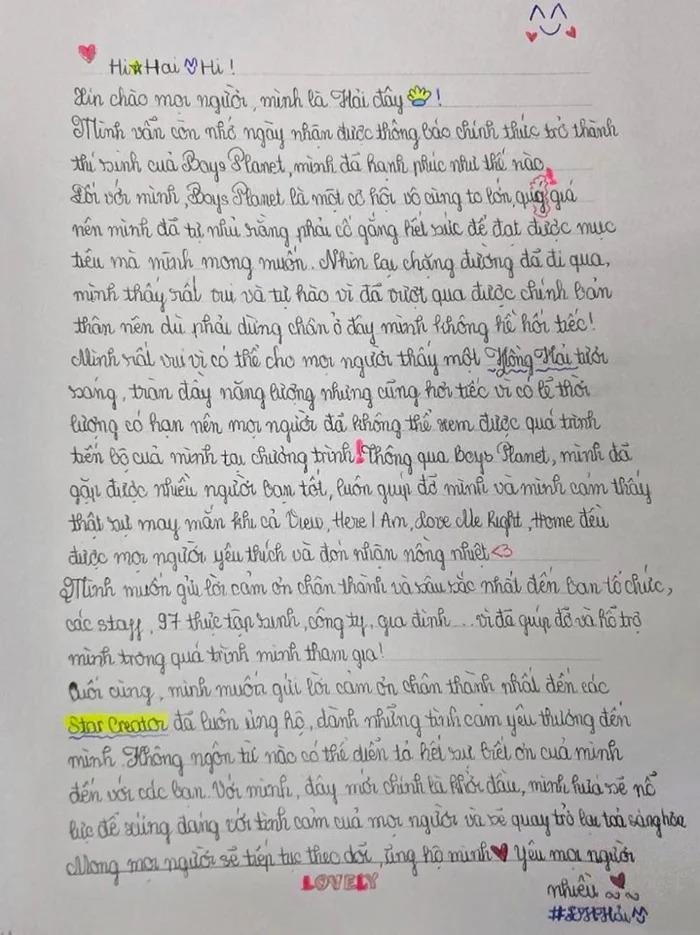 Hi☆Hai♡Hi !
Xin chào mọi người, mình là Hải đây !
Mình vẫn còn nhớ ngày nhận được thông báo chính thức trở thành
thí sinh của Boys Planet, mình đã hạnh phúc như thế nào.
Đối với mình, Boys Planet là một cơ hội vô cùng to lớn, quý giá
nên mình đã tự nhủ rằng phải cố gắng hết sức để đạt được mục
tiêu mà mình mong muốn. Nhìn lại chặng đường đã đi qua,
mình thấy rất vui và tự hào vì đã vượt qua được chính bản
thân nên dù phải dừng chân ở đây mình không hề hối tiếc!
Mình rất vui vì có thể cho mọi người thấy một Hồng Hải tươi
sáng, tràn đầy năng lượng nhưng cũng hơi tiếc vì có lẽ thời
lượng có hạn nên mọi người đã không thể xem được quá trình
tiến bộ của mình tại chương trình! Thông qua Boys Planet, mình đã
gặp được nhiều người bạn tốt, luôn giúp đỡ mình và mình cảm thấy
thật sự may mắn khi cả View, Here I Am, Love Me Right, Home đều
được mọi người yêu thích và đón nhận nồng nhiệt <3
Mình muốn gửi lời cảm ơn chân thành và sâu sắc nhất đến ban tổ chức,
các staff, 97 thực tập sinh, công ty, gia đình ... vì đã giúp đỡ và hỗ trợ
mình trong quá trình mình tham gia!
Cuối cùng, mình muốn gửi lời cảm ơn chân thành nhất đến các
Star Creator đã luôn ủng hộ, dành những tình cảm yêu thương đến
mình. Không ngôn từ nào có thể diễn tả hết sự biết ơn của mình
đến với các bạn. Với mình, đây mới chính là khởi đầu, mình hứa sẽ nỗ
lực để xứng đáng với tình cảm của mọi người và sẽ quay trở lại toả sáng hơn
Mong mọi người sẽ tiếp tục theo dõi, ủng hộ mình♥ Yêu mọi người
LOVELY
nhiều